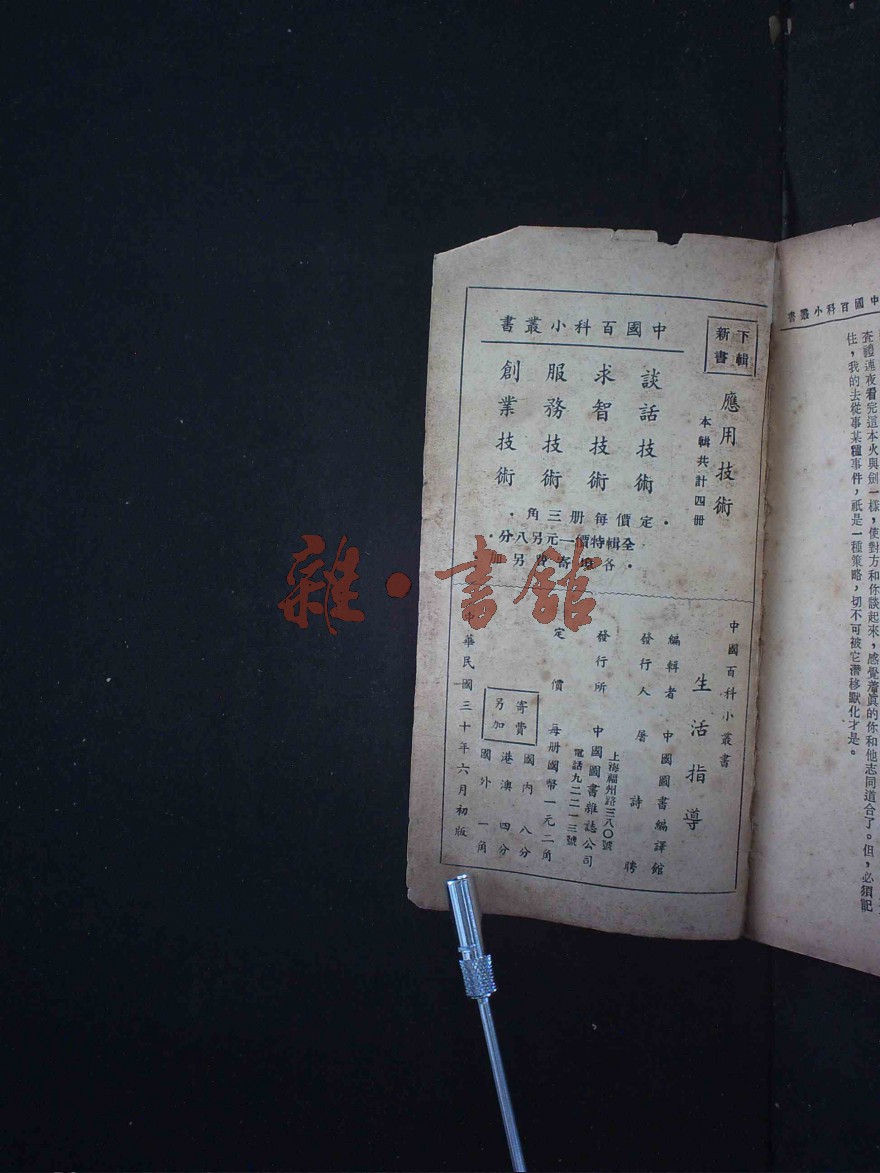 中國百科小叢書
下輯新書
應用技術
本輯共計四册
談話技術
求智技術
服務技術
創業技術
·定價每册三角·
全輯特價一元另八分·
中國百科小叢書
生活指導
編輯者 中國圖書編譯館
發行人 屠詩聘
發行所 中國圖書雜誌公司
上海福州路三八〇號
電話九二二一三號
定價 每册國幣一元二角
寄費另加
國內 八分
港澳 四分
國外 一角
中華民國三十年六月初版
中國百科小叢書
夜看完這本火與劍一樣，使對方和你談起來，感覺着眞的你和他志同道合了。但，必須記
住，我的去從事某種事件，祇是一種策略，切不可被它潛移默化才是。
雜·書館